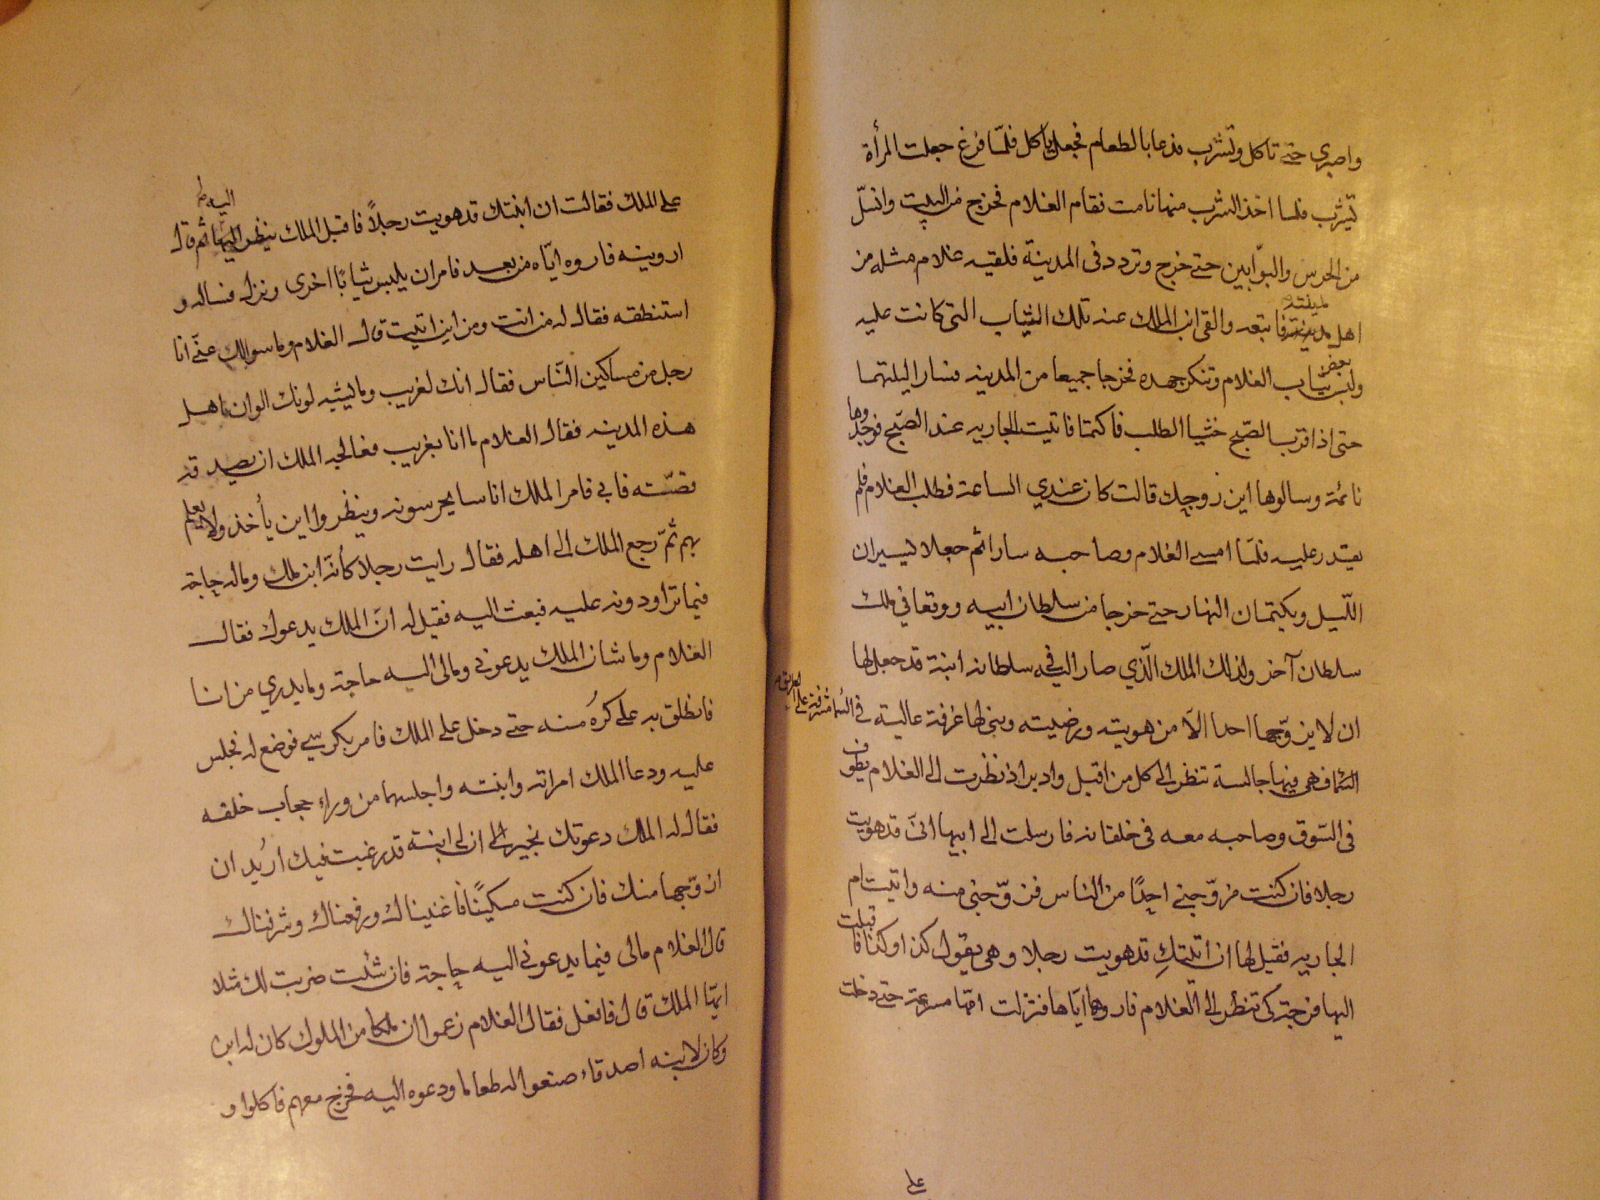 واصبري حتى تاكل وتشرب فدعا بالطعام فجعل ياكل فلمّا فرغ جعلت المرأة
تشرب فلما اخذ الشرب منها نامت فقام الغلام فخرج من البيت وانسلّ
من الحرس والبوّابين حتى خرج وتردد في المدينة فلقيه غلام مثله من
اهل مدينته فاتبعه والقى ابن الملك عنه تلك الثياب التي كانت عليه
ولبس بعض ثياب الغلام وتنكر جهده فخرجا جميعا من المدينه فسارا ليلتهما
حتى اذا قرب الصّبح خشيا الطلب فاكتمنا فاتيت الجاريه عند الصّبح فوجدوها
نائمة وسالوها اين زوجك قالت كان عندي الساعة فطلب الغلام فلم
يقدر عليه فلمّا امسى الغلام وصاحبه سارا ثم جعلا يسيران
اللّيل ويكتمان النهار حتى خرجا من سلطان ابيه ووقعا في ملك
سلطان آخر ولذلك الملك الّذي صارا الى سلطانه ابنة قد جعل لها
ان لا يزوّجها احدا الّا من هويته ورضيته وبنى لها غرفة عالية في السّما مشرفة على الطريق
فهى فيها جالسة تنظر الى كل من اقبل وادبر اذ نظرت الى الغلام يطوف
في السّوق وصاحبه معه في خلقانه فارسلت الى ابيها انّى قد هويت
رجلا فان كنت مزوّجني احدًا من الناس فزوّجني منه واتيت ام
الجاريه فقيل لها ان ابنتكِ قد هويت رجلا وهى تقول كذا وكذا فاقبلت
اليها فرحة كى تنظر الى الغلام فاروها ايّاها فنزلت امّها مسرعة حتى دخلت
على
على الملك فقالت ان ابنتك قد هويت رجلاً فاقبل الملك ينظر اليه ثم قال
ارونيه فاروه ايّاه من بعد فامر ان يلبس ثيابًا اخرى ونزل فساله و
استنطقه فقال له من انت ومن اين اتيت قال الغلام وما سوالك عنّي انا
رجل من مساكين النّاس فقال انك لغريب وما يشبه لونك الوان اهل
هذه المدينه فقال الغلام ما انا بغريب فعالجه الملك ان يصدقه
قصّته فابى فامر الملك اناسا يحرسونه وينظروا اين يأخذ ولا يعلم
بهم ثمّ رجع الملك الى اهله فقال رايت رجلا كأنّه ابن ملك وماله حاجة
فيما تراودونه عليه فبعث اليه فقيل له انّ الملك يدعوك فقال
الغلام وما شان الملك يدعوني ومالى اليه حاجة وما يدري من انا
فانطلق به على كرُه منه حتى دخل على الملك فامر بكرسي فوضع له فجلس
عليه ودعا الملك امراته وابنته واجلسهما من وراء حجاب خلفه
فقال له الملك دعوتك لخير ان لى ابنة قد رغبت فيك اريُد ان
ازوّجها منك فان كنت مسكينًا فاغنيناك ورفعناك وشرفناك
قال الغلام مالى فيما يدعوني اليه حاجة فان شئت ضربت لك مثلا
ايّها الملك قال فافعل فقال الغلام زعموا ان ملكا من الملوك كان له ابن
وكان لابنه اصدقاء صنعوا له طعاما ودعوه اليه فخرج معهم فاكلوا و